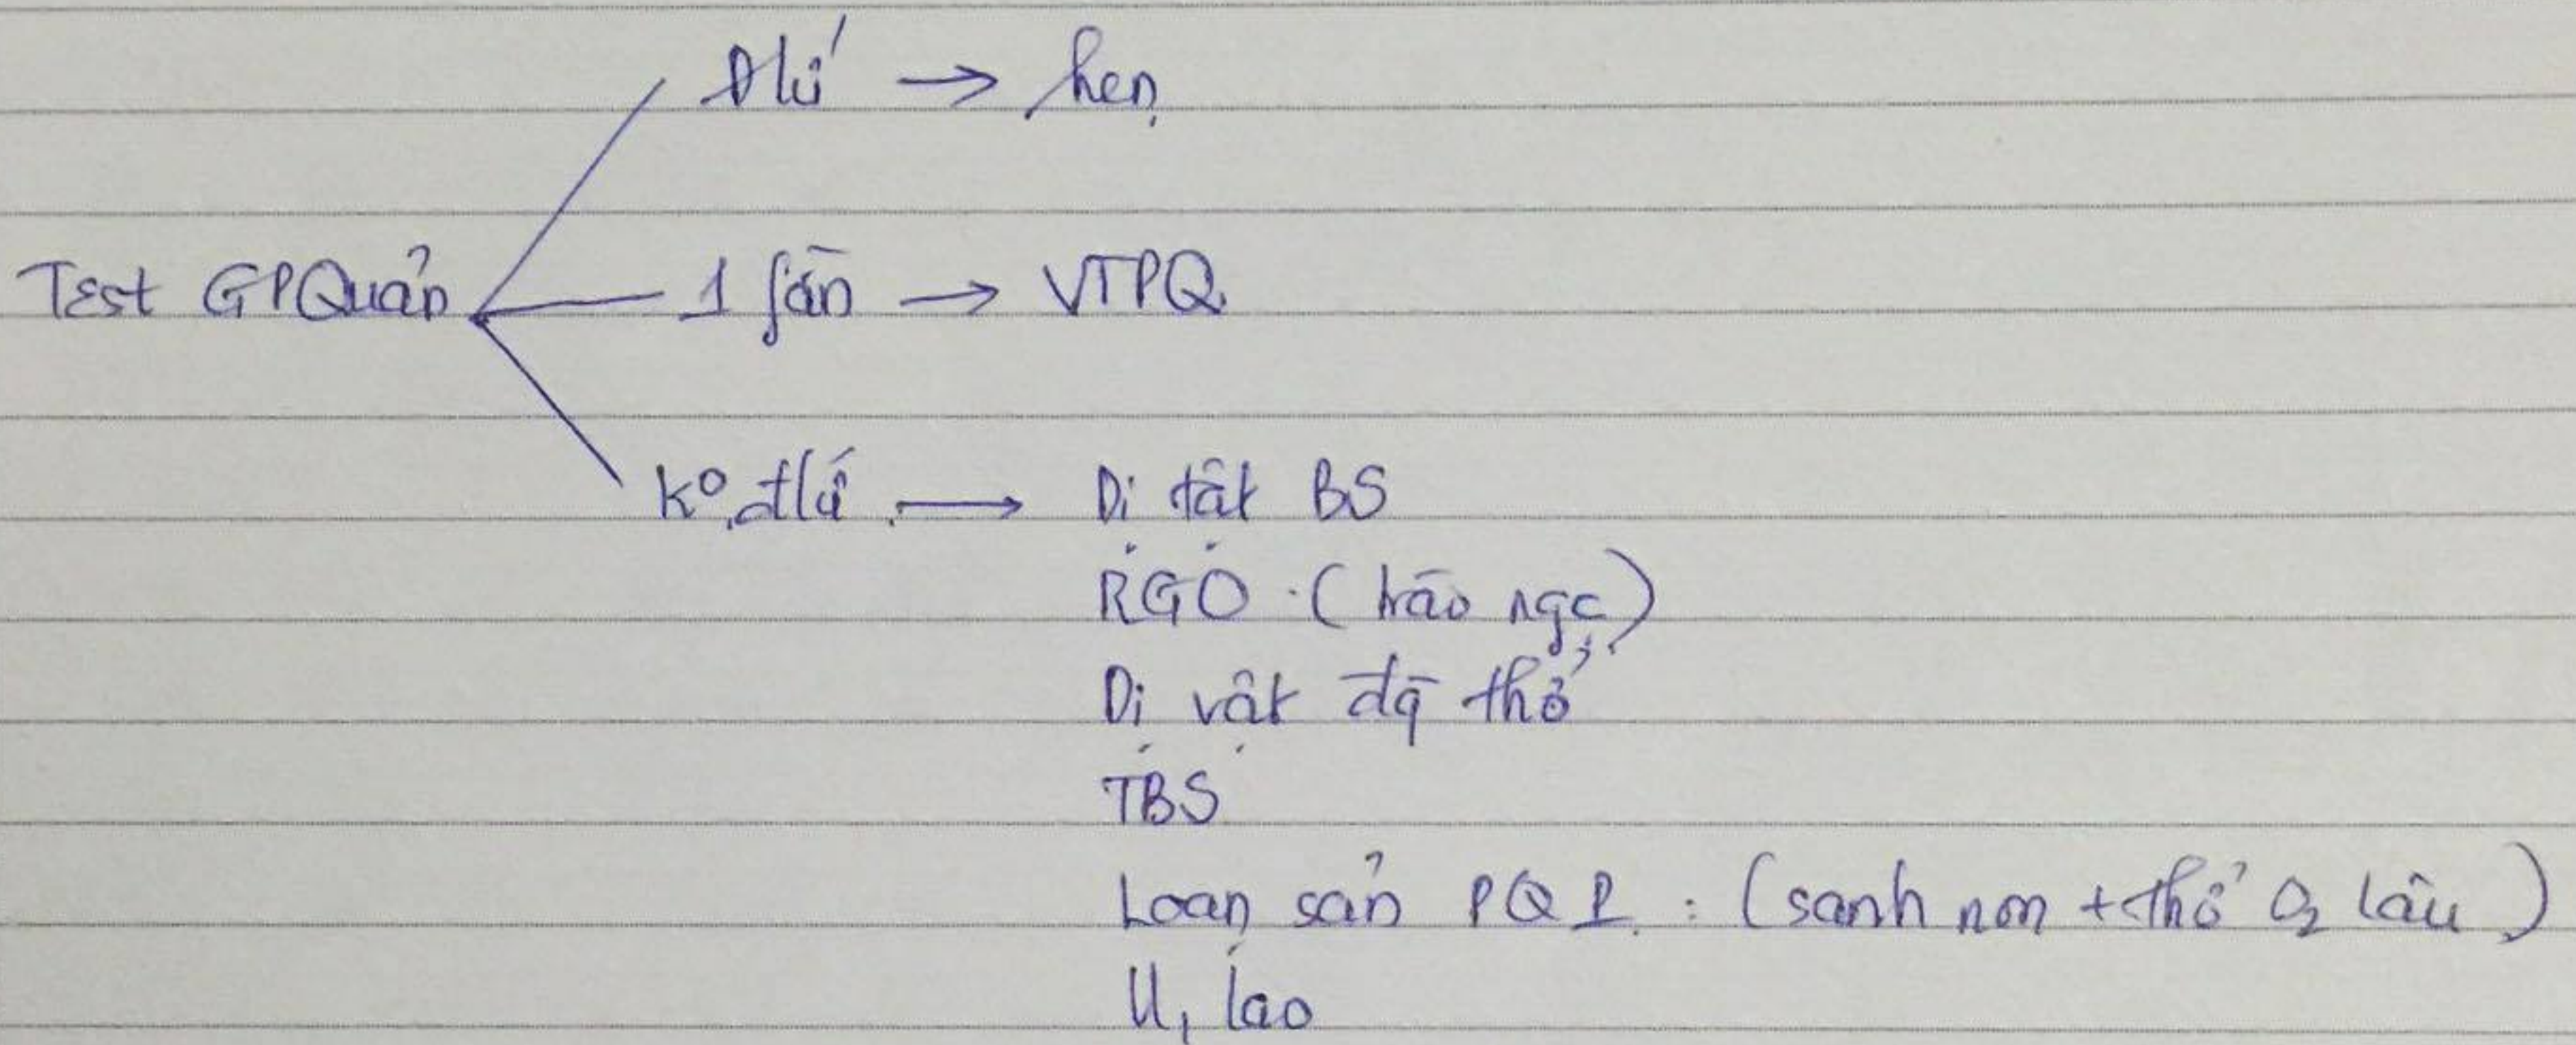 Đứ → hen
Test GPQuản
1 fần → VTPQ
Kº đứ → Dị tật BS
RGO (trào ngc)
Dị vật đg thở
TBS
Loạn sản PQP : (sanh non + thở O₂ lâu)
U, lao